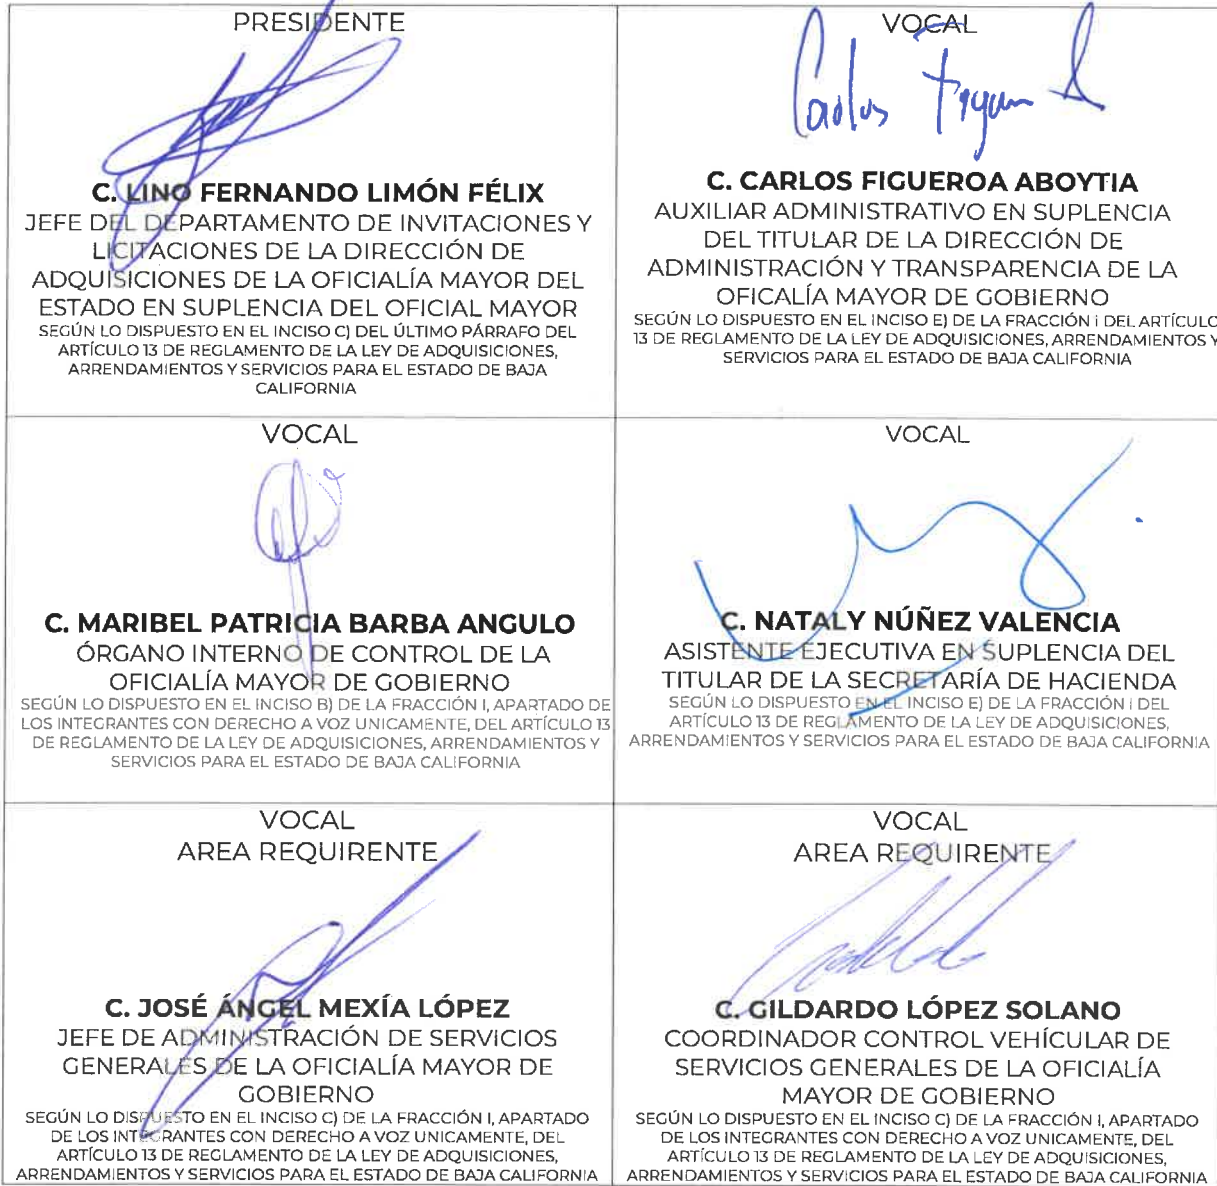 PRESIDENTE
C. LINO FERNANDO LIMÓN FÉLIX
JEFE DEL DEPARTAMENTO DE INVITACIONES Y
LICITACIONES DE LA DIRECCIÓN DE
ADQUISICIONES DE LA OFICIALÍA MAYOR DEL
ESTADO EN SUPLENCIA DEL OFICIAL MAYOR
SEGÚN LO DISPUESTO EN EL INCISO C) DEL ÚLTIMO PÁRRAFO DEL
ARTÍCULO 13 DE REGLAMENTO DE LA LEY DE ADQUISICIONES,
ARRENDAMIENTOS Y SERVICIOS PARA EL ESTADO DE BAJA
CALIFORNIA
VOCAL
Carlos
C. CARLOS FIGUEROA ABOYTIA
AUXILIAR ADMINISTRATIVO EN SUPLENCIA
DEL TITULAR DE LA DIRECCIÓN DE
ADMINISTRACIÓN Y TRANSPARENCIA DE LA
OFICALÍA MAYOR DE GOBIERNO
SEGÚN LO DISPUESTO EN EL INCISO E) DE LA FRACCIÓN I DEL ARTÍCULO
13 DE REGLAMENTO DE LA LEY DE ADQUISICIONES, ARRENDAMIENTOS Y
SERVICIOS PARA EL ESTADO DE BAJA CALIFORNIA
VOCAL
C. MARIBEL PATRICIA BARBA ANGULO
ÓRGANO INTERNO DE CONTROL DE LA
OFICIALÍA MAYOR DE GOBIERNO
SEGÚN LO DISPUESTO EN EL INCISO B) DE LA FRACCIÓN I, APARTADO DE
LOS INTEGRANTES CON DERECHO A VOZ UNICAMENTE, DEL ARTÍCULO 13
DE REGLAMENTO DE LA LEY DE ADQUISICIONES, ARRENDAMIENTOS Y
SERVICIOS PARA EL ESTADO DE BAJA CALIFORNIA
VOCAL
C. NATALY NÚÑEZ VALENCIA
ASISTENTE EJECUTIVA EN SUPLENCIA DEL
TITULAR DE LA SECRETARÍA DE HACIENDA
SEGÚN LO DISPUESTO EN EL INCISO E) DE LA FRACCIÓN I DEL
ARTÍCULO 13 DE REGLAMENTO DE LA LEY DE ADQUISICIONES,
ARRENDAMIENTOS Y SERVICIOS PARA EL ESTADO DE BAJA CALIFORNIA
VOCAL
AREA REQUIRENTE
C. JOSÉ ÁNGEL MEXÍA LÓPEZ
JEFE DE ADMINISTRACIÓN DE SERVICIOS
GENERALES DE LA OFICIALÍA MAYOR DE
GOBIERNO
SEGÚN LO DISPUESTO EN EL INCISO C) DE LA FRACCIÓN I, APARTADO
DE LOS INTEGRANTES CON DERECHO A VOZ UNICAMENTE, DEL
ARTÍCULO 13 DE REGLAMENTO DE LA LEY DE ADQUISICIONES,
ARRENDAMIENTOS Y SERVICIOS PARA EL ESTADO DE BAJA CALIFORNIA
VOCAL
AREA REQUIRENTE
C. GILDARDO LÓPEZ SOLANO
COORDINADOR CONTROL VEHÍCULAR DE
SERVICIOS GENERALES DE LA OFICIALÍA
MAYOR DE GOBIERNO
SEGÚN LO DISPUESTO EN EL INCISO C) DE LA FRACCIÓN I, APARTADO
DE LOS INTEGRANTES CON DERECHO A VOZ UNICAMENTE, DEL
ARTÍCULO 13 DE REGLAMENTO DE LA LEY DE ADQUISICIONES,
ARRENDAMIENTOS Y SERVICIOS PARA EL ESTADO DE BAJA CALIFORNIA